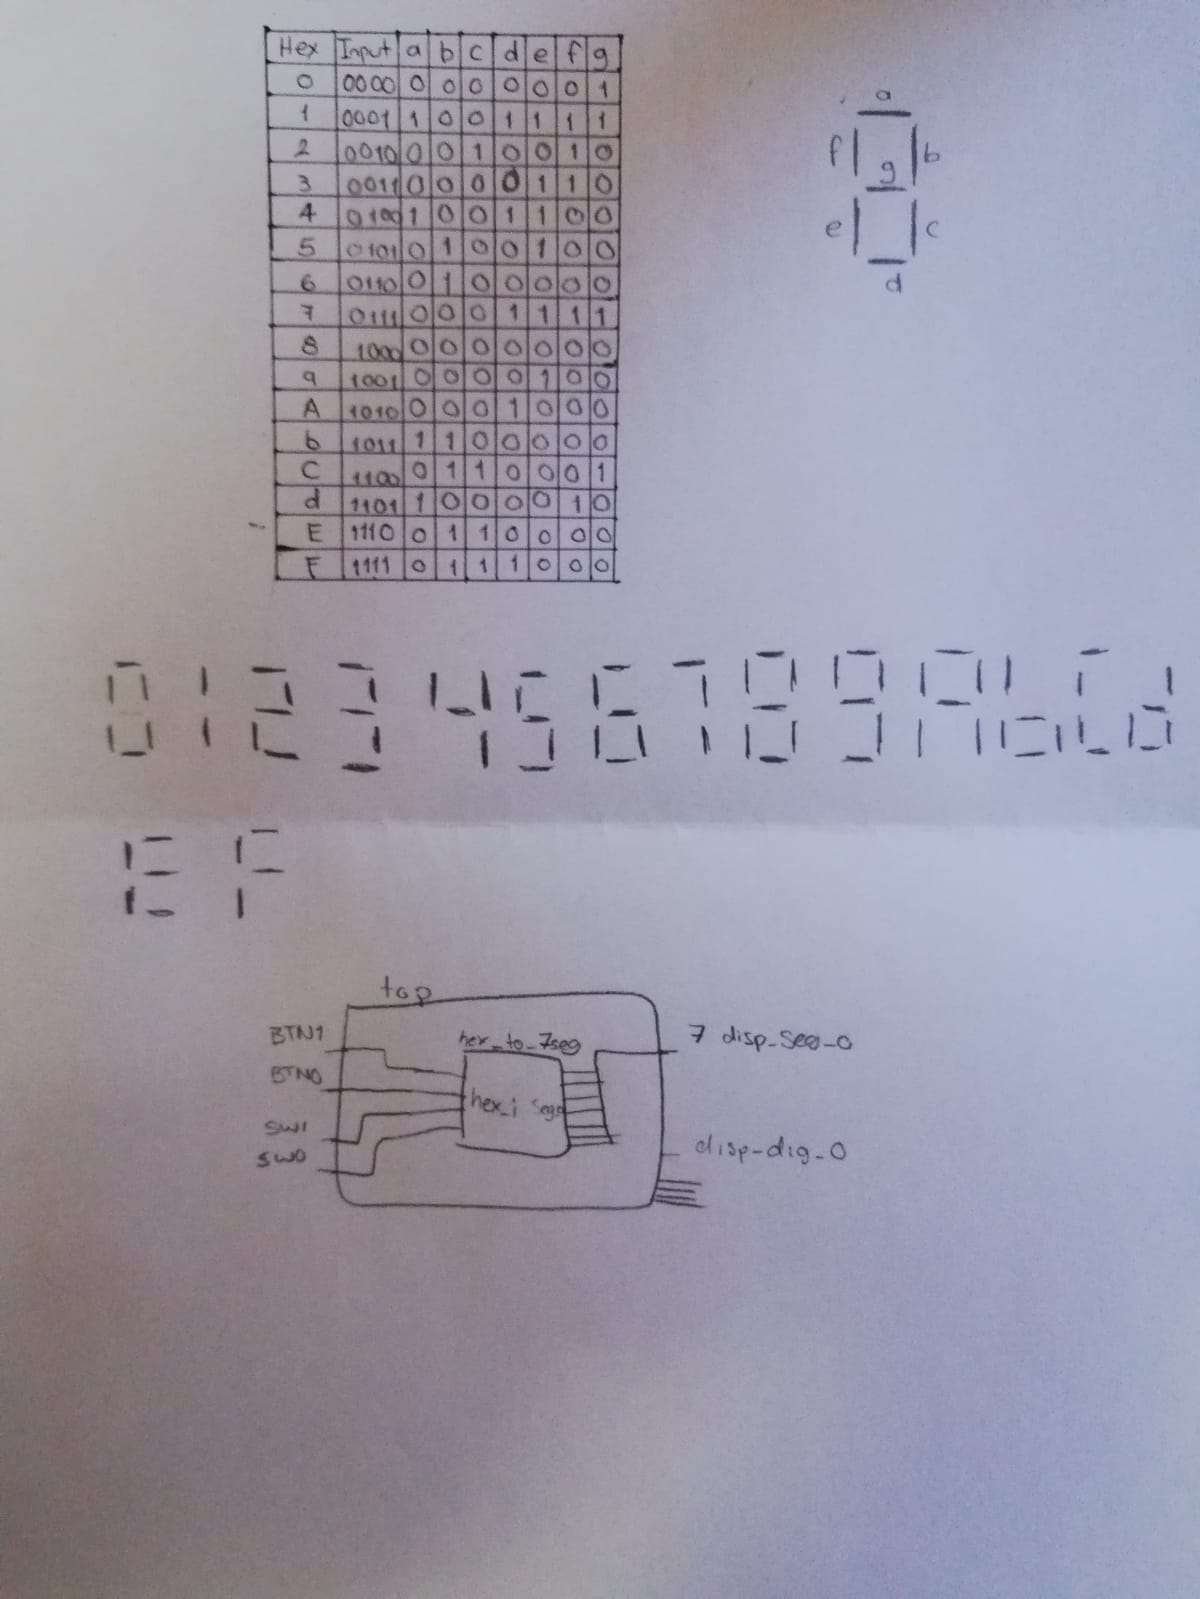 Hex Input a b c d e f g
0 0000 0 0 0 0 0 0 1
1 0001 1 0 0 1 1 1 1
2 0010 0 0 1 0 0 1 0
3 0011 0 0 0 0 1 1 0
4 0100 1 0 0 1 1 0 0
5 0101 0 1 0 0 1 0 0
6 0110 0 1 0 0 0 0 0
7 0111 0 0 0 1 1 1 1
8 1000 0 0 0 0 0 0 0
9 1001 0 0 0 0 1 0 0
A 1010 0 0 0 1 0 0 0
b 1011 1 1 0 0 0 0 0
C 1100 0 1 1 0 0 0 1
d 1101 1 0 0 0 0 1 0
E 1110 0 1 1 0 0 0 0
F 1111 0 1 1 1 0 0 0
a
f b
g
e c
d
0 1 2 3 4 5 6 7 8 9 A b C d
E F
top
BTN1 hex_to_7seg 7 disp_seg_0
BTN0
hex_i sego
SW1
SW0 disp-dig-0